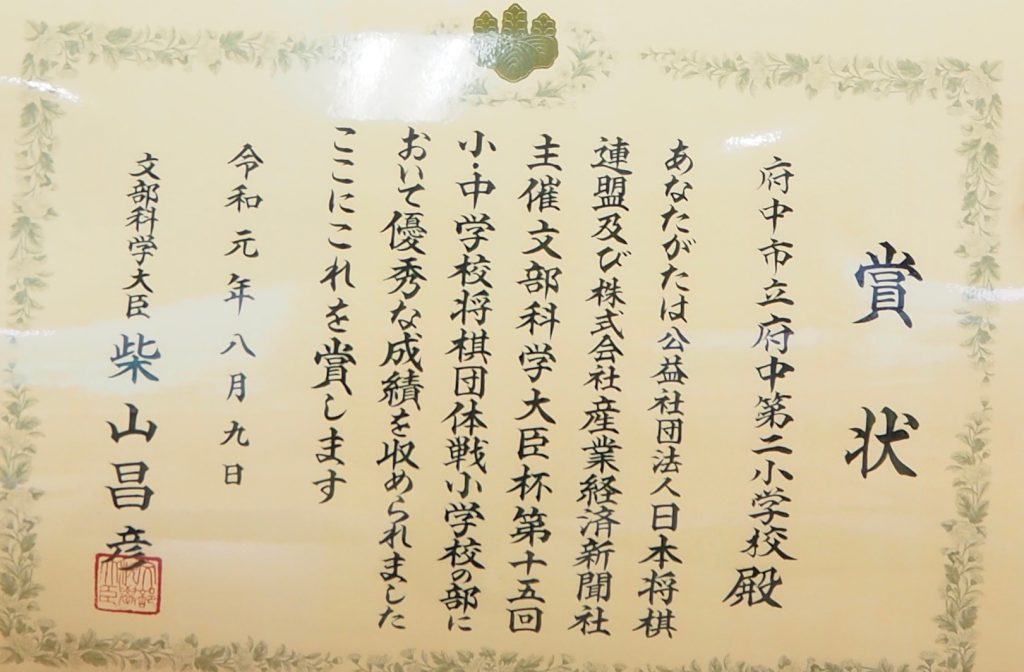 賞状
府中市立府中第二小学校殿
あなたがたは公益社団法人日本将棋
連盟及び株式会社産業経済新聞社
主催文部科学大臣杯第十五回
小・中学校将棋団体戦小学校の部に
おいて優秀な成績を収められました
ここにこれを賞します
令和元年八月九日
文部科学大臣 柴山昌彦